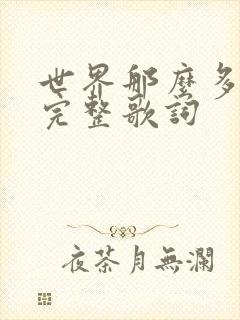 世界那麼多
完整歌詞
夜茶月無瀾